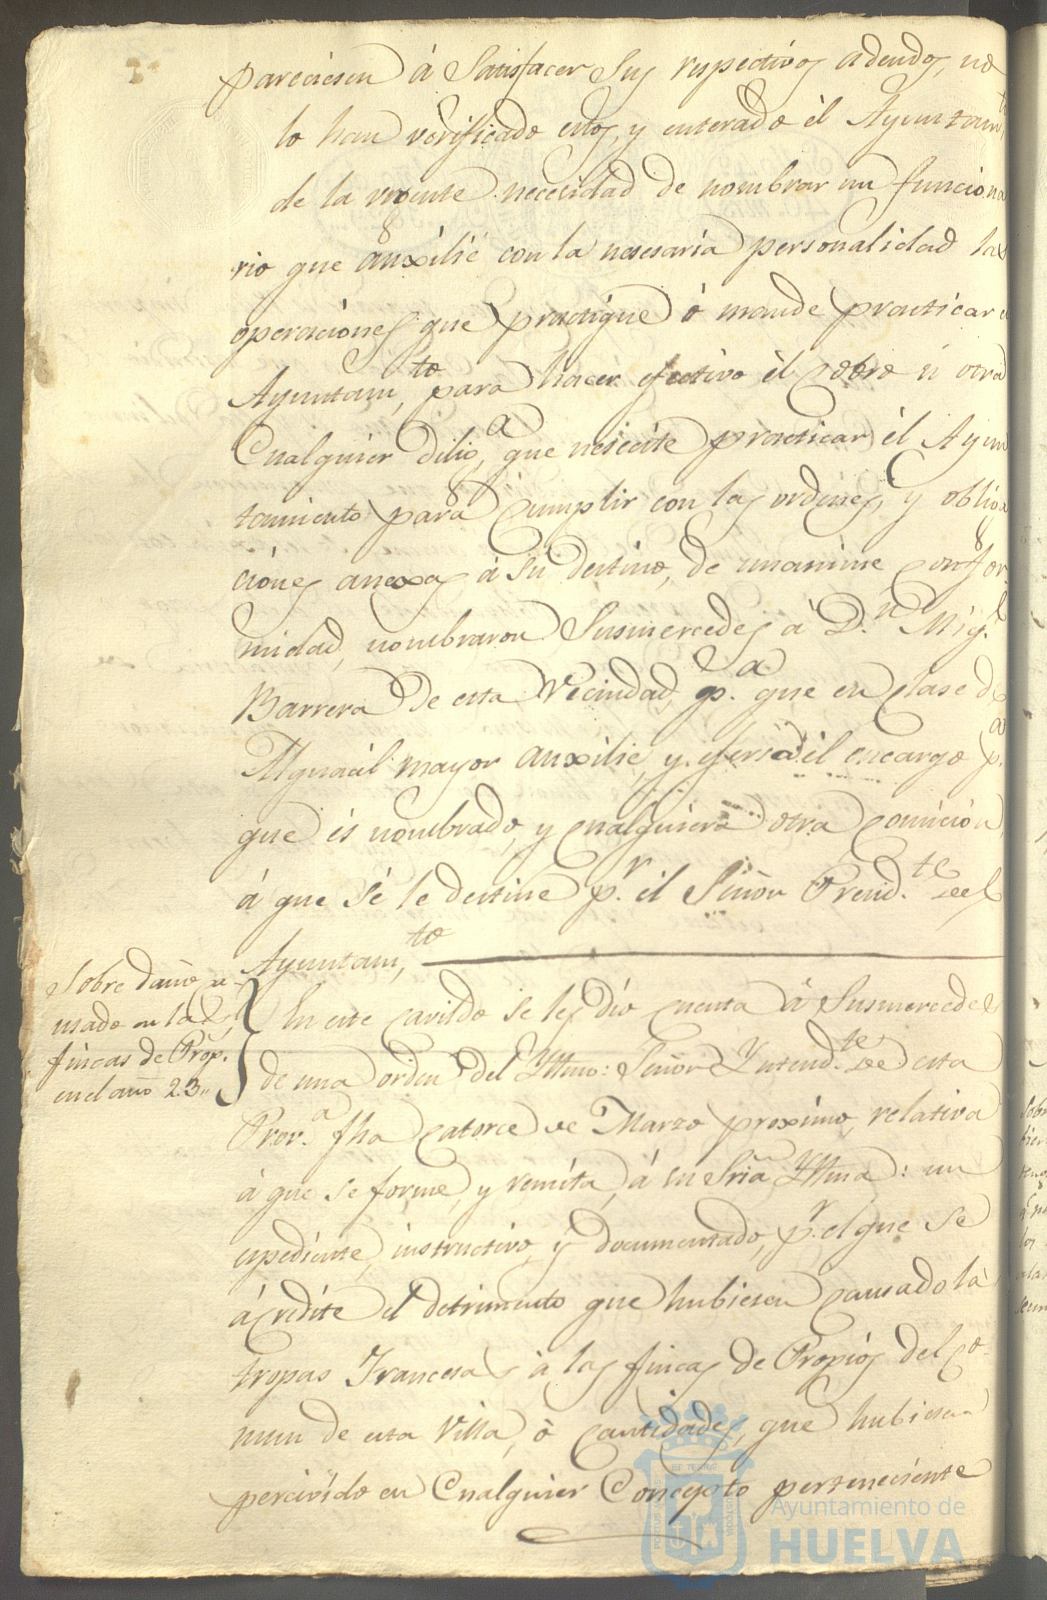 pareciesen á Satisfacer Sus respectivos adeudos, no
lo han verificado estos, y enterado él Ayuntam.to
de la urgente necesidad de nombrar un funciona
rio que auxilié con la nesesaria personalidad las
operaciones que practique ó mande practicar el
Ayuntam.to para hacer efectivo él cobro ú otra
Cualquier dilig.a que nesecite practicar él Ayun
tamiento para cumplir con las ordenes, y obliga
ciones anexas á su destino, de unanime confor-
midad, nombraron Susmercedes á D.n Mig.l
Barrera de esta Vecindad, p.a que en clase de
Alguacil mayor auxilie, y ejersa él encargo p.a
que és nombrado, y cualquiera otra comición
á que sé le destine p.r él Señor Presid.te del
Ayuntam.to
Sobre daño ca-
usado en las
fincas de Prop.s
en el año 23,,
En este cavildo se les dio cuenta á Susmercedes
de una orden del Yltmo: Señor Yntend.te de esta
Prov.a fha catorce de Marzo proximo, relativa
á que se forme, y remita, á su Sría Yltma: un
espediente, instructivo, y documentado, p.r el que se
ácredite el detrimento que hubiesen causado la
tropas Francesas á las fincas de Propios del co-
mun de esta Villa, ó cantidades, que hubiesen
percivido en Cualquier Concepto perteneciente
Ayuntamiento de
HUELVA